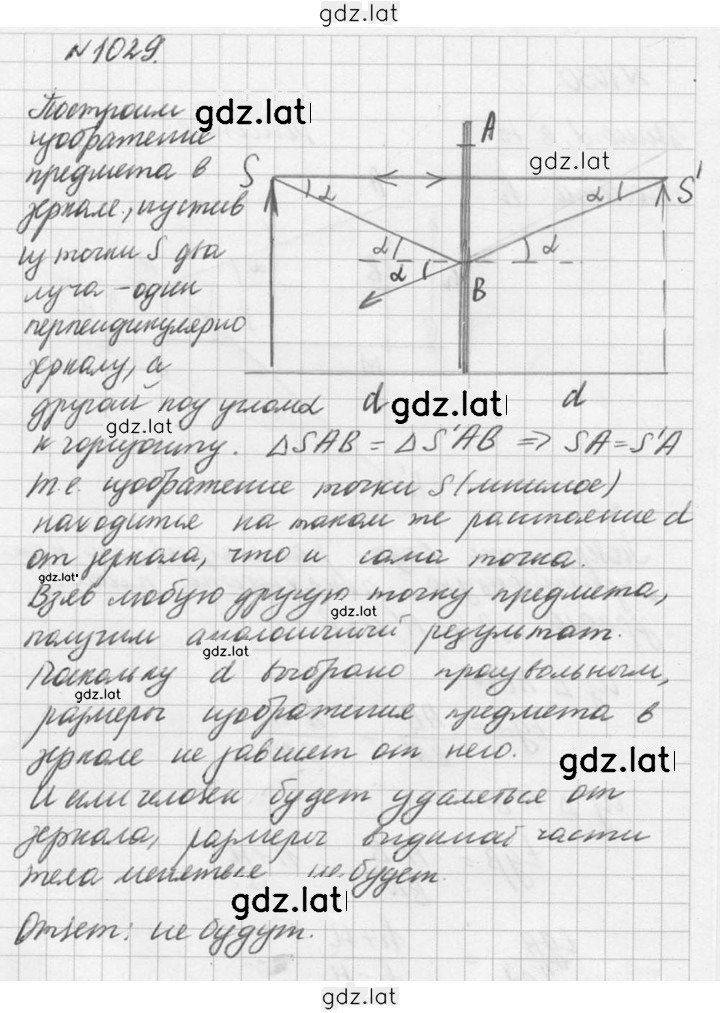 gdz.lat
№1029.
Построим gdz.lat
изображение
предмета в
зеркале, пустив
из точки S два
луча - один
перпендикулярно
зеркалу, а
другой под углом α
к горизонту. ΔSAB = ΔS'AB ⇒ SA = S'A
A
gdz.lat
S
S'
α
α
α
α
α
B
d
gdz.lat
d
т.е. изображение точки S (мнимое)
находится на таком же расстояние d
от зеркала, что и сама точка.
gdz.lat
Взяв любую другую точку предмета,
gdz.lat
получим аналогичный результат.
gdz.lat
Поскольку d выбрано произвольным,
gdz.lat
размеры изображение предмета в
зеркале не зависит от него.
gdz.lat
И если человек будет удаляться от
зеркала, размеры видимой части
тела меняться не будет.
gdz.lat
Ответ: не будут.
gdz.lat